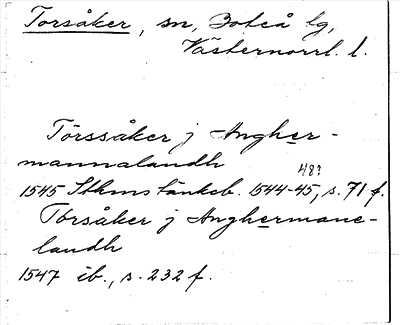 Torsåker, sn, Boteå tg,
Västernorrl. l.
Törssåker j Angher-
mannalandh
48?
1545 Sthms tänkeb. 1544-45, s. 71 f.
Torsåker j Anghermane-
landh
1547 ib., s. 232 f.